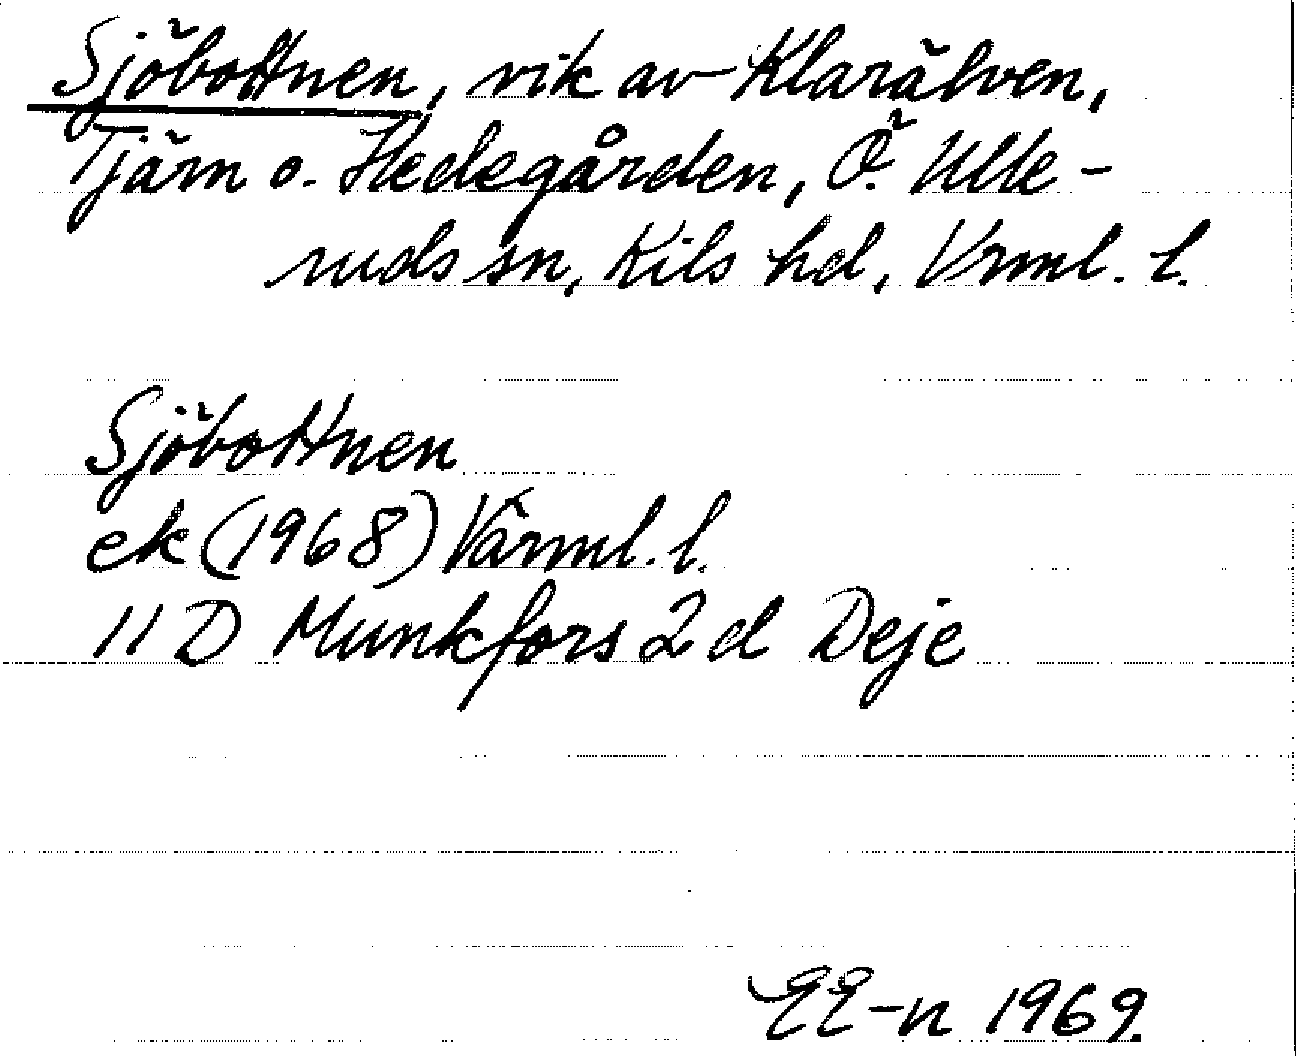 Sjöbottnen, vik av Klarälven,
Tjärn o. Hedegården, Ö. Ulle-
ruds sn, Kils hd, Vrml. l.
Sjöbottnen
ek (1968) Värml. l.
11 D Munkfors 2 d Deje
EE-n 1969.